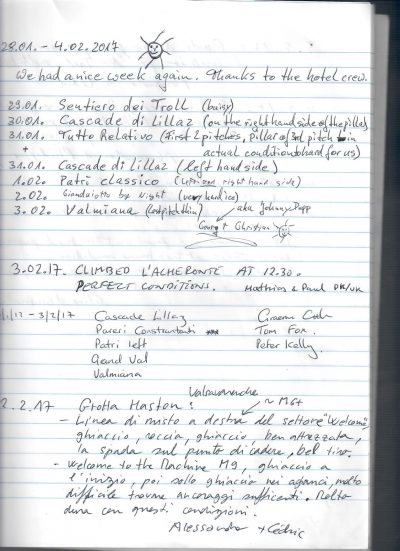 28.01. - 4.02.2017
We had a nice week again. Thanks to the hotel crew.
29.01. Sentiero dei Troll (busy)
30.01. Cascade di Lillaz (on the right hand side of the pillar)
31.01. Tutto Relativo (first 2 pitches, pillar of 3rd pitch thin
+ actual condition to hard for us)
31.01. Cascade di Lillaz (left hand side)
1.02. Patri classico (right hand side)
2.02. Gianduiotto by Night (very hard ice)
3.02. Valmiana (last pitch thin) aka Johnny Depp
Georg + Christian
3.02.17. CLIMBED L'ACHERONTE AT 12.30.
PERFECT CONDITIONS. Mathias & Paul DK/UK
1/12 - 3/2/17 Cascade Lillaz Graeme
Pareri Constrantanti Tom Fox.
Patri left Peter Kelly.
Grand Val
Valmiana
Valsavarenche
2.2.17 Grotta Haston: ~ M6+
- Linea di misto a destra del settore "Welcome"
ghiaccio, roccia, ghiaccio, ben attrezzata,
la spada sul punto di cadere, bel tiro.
- Welcome to the Machine M9, ghiaccio a
l'inizio, poi solo ghiaccio nei agganci, molto
difficile trovare ancoraggi sufficenti. Molto
dura con questi condizioni.
Alessandra + Cédric